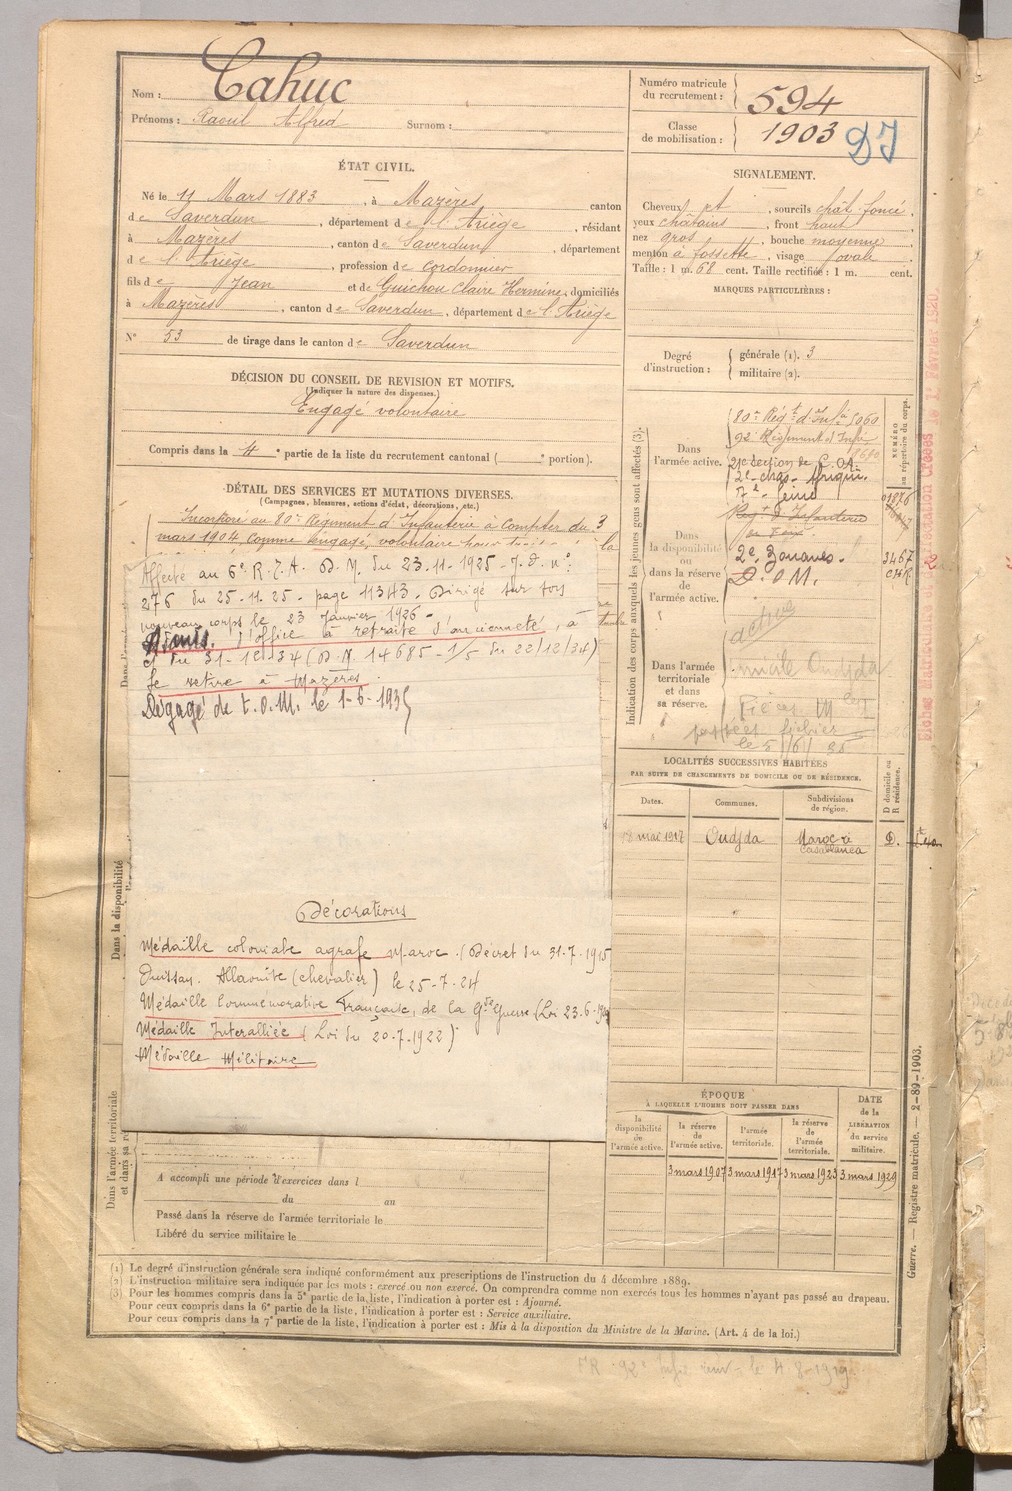 Nom : Cahuc
Prénoms : Raoul Alfred Surnom :
Numéro matricule du recrutement : 594
Classe de mobilisation : 1903
DJ
ÉTAT CIVIL.
Né le 11 Mars 1883, à Mazères canton
de Saverdun, département de l'Ariège, résidant
à Mazères, canton de Saverdun, département
de l'Ariège, profession de cordonnier
fils de Jean et de Guichou Claire Hermine, domiciliés
à Mazères, canton de Saverdun, département de l'Ariège
N° 53 de tirage dans le canton de Saverdun
SIGNALEMENT.
Cheveux et, sourcils chât. foncé,
yeux châtains, front haut
nez gros, bouche moyenne
menton à fossette, visage ovale
Taille : 1 m. 68 cent. Taille rectifiée : 1 m. cent.
MARQUES PARTICULIÈRES :
Degré d'instruction : générale (1). 3
militaire (2).
DÉCISION DU CONSEIL DE REVISION ET MOTIFS.
(Indiquer la nature des dispenses.)
Engagé volontaire
Compris dans la 4e partie de la liste du recrutement cantonal ( e portion).
DÉTAIL DES SERVICES ET MUTATIONS DIVERSES.
(Campagnes, blessures, actions d'éclat, décorations, etc.)
Incorporé au 80e Régiment d'Infanterie à compter du 3
mars 1904, comme engagé volontaire pour la
Affecté au 6e R.T.A. D.M. du 23.11.1925 - J.O. n°
276 du 25-11-25 - page 11343. Dirigé sur son
nouveau corps le 23 Janvier 1926.
Admis d'office à retraite d'ancienneté, à
du 31-12-34 (D.M. 14685-1/5 du 22/12/34)
Se retire à Mazères.
Dégagé de t. O.M. le 1-6-1935
Décorations
Médaille coloniale agrafe Maroc. (Décret du 31.7.1915
Ouissam Allaouite (chevalier) le 25-7-24
Médaille Commémorative Française, de la Gde Guerre (Loi 23.6.1920
Médaille Interalliée (Loi du 20.7.1922)
Médaille Militaire
Indication des corps auxquels les jeunes gens sont affectés (3).
NUMÉRO au répertoire du corps.
Dans l'armée active.
80e Régt d'Infie 5060
92e Régiment d'Infie
21e Section de C.O.A.
2e chas. Afriqu.
7e Génie
Regt d'Infanterie
Dans la disponibilité ou dans la réserve de l'armée active.
2e Zouaves. 3467
D.O.M.
active
Dans l'armée territoriale et dans sa réserve.
Oudjda
fichier
le 5/6/35
Fiches
LOCALITÉS SUCCESSIVES HABITÉES
PAR SUITE DE CHANGEMENTS DE DOMICILE OU DE RÉSIDENCE.
Dates. Communes. Subdivisions de région. D domicile ou R résidence.
18 mai 1917 Oudjda Maroc à Casablanca D.
ÉPOQUE
À LAQUELLE L'HOMME DOIT PASSER DANS
la disponibilité de l'armée active. la réserve de l'armée active. l'armée territoriale. la réserve de l'armée territoriale. DATE de la LIBÉRATION du service militaire.
3 mars 1907 3 mars 1917 3 mars 1923 3 mars 1929
Dans la disponibilité
Dans l'armée territoriale
A accompli une période d'exercices dans l
du au
Passé dans la réserve de l'armée territoriale le
Libéré du service militaire le
(1) Le degré d'instruction générale sera indiqué conformément aux prescriptions de l'instruction du 4 décembre 1889.
(2) L'instruction militaire sera indiquée par les mots : exercé ou non exercé. On comprendra comme non exercés tous les hommes n'ayant pas passé au drapeau.
(3) Pour les hommes compris dans la 5e partie de la liste, l'indication à porter est : Ajourné.
Pour ceux compris dans la 6e partie de la liste, l'indication à porter est : Service auxiliaire.
Pour ceux compris dans la 7e partie de la liste, l'indication à porter est : Mis à la disposition du Ministre de la Marine. (Art. 4 de la loi.)
Guerre. — Registre matricule. — 2-89-1903.
le 4-8-1919